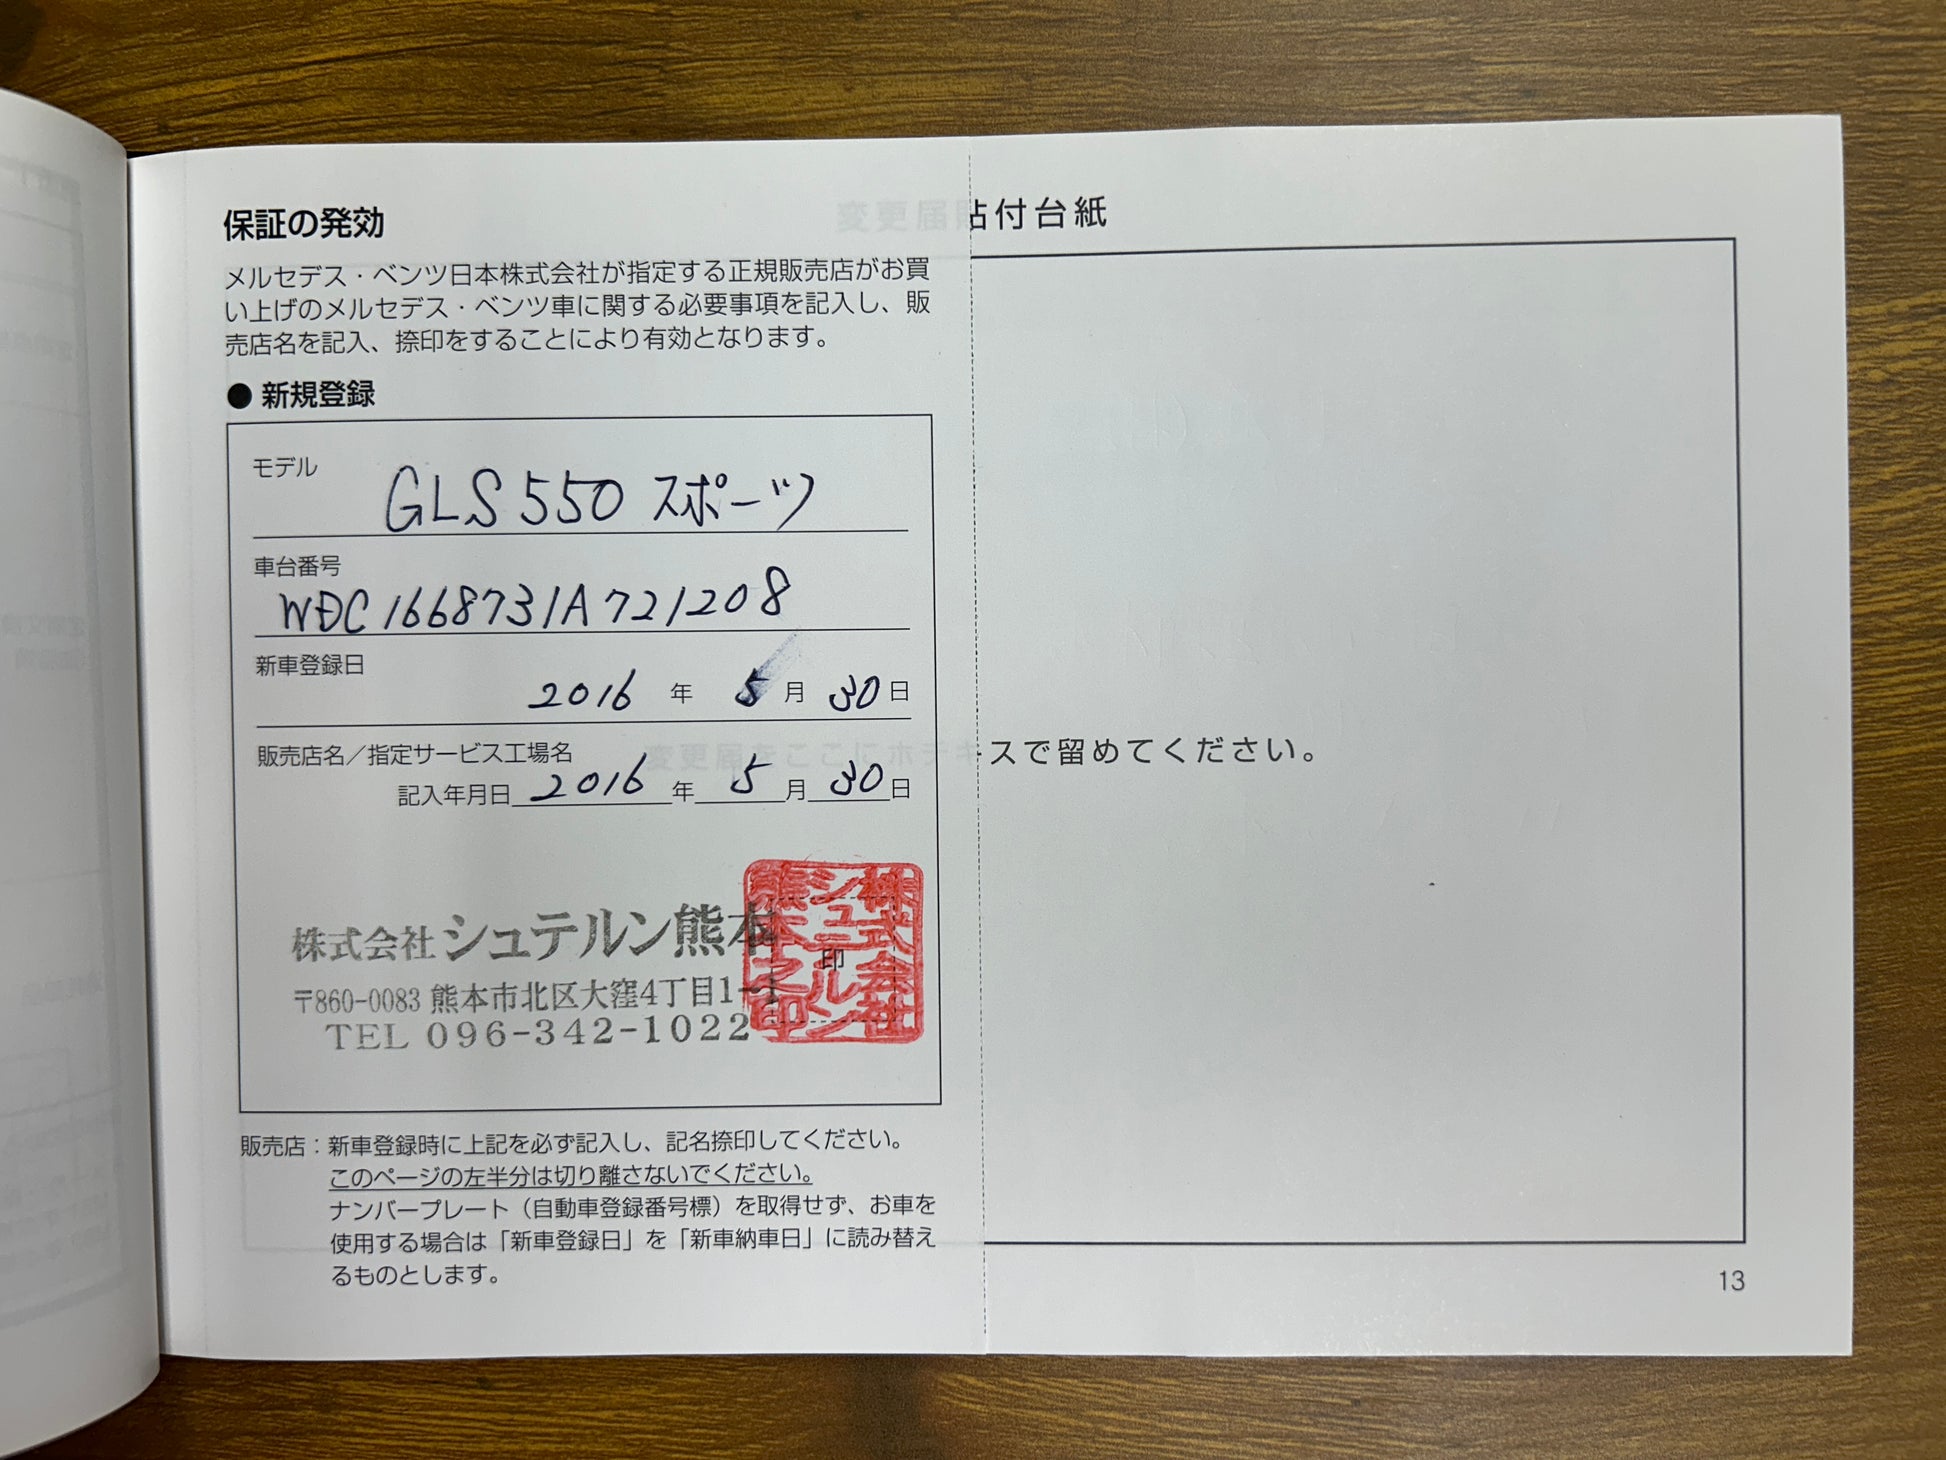 保証の発効
メルセデス・ベンツ日本株式会社が指定する正規販売店がお買
い上げのメルセデス・ベンツ車に関する必要事項を記入し、販
売店名を記入、捺印をすることにより有効となります。
● 新規登録
モデル
GLS 550 スポーツ
車台番号
WDC1668731A721208
新車登録日
2016 年 5 月 30 日
販売店名／指定サービス工場名
記入年月日 2016 年 5 月 30 日
株式会社 シュテルン熊本
〒860-0083 熊本市北区大窪4丁目1-1
TEL 096-342-1022
印
株式会社
シュテルン
熊本之印
販売店：新車登録時に上記を必ず記入し、記名捺印してください。
このページの左半分は切り離さないでください。
ナンバープレート（自動車登録番号標）を取得せず、お車を
使用する場合は「新車登録日」を「新車納車日」に読み替え
るものとします。
変更届貼付台紙
変更届をここにホチキスで留めてください。
13